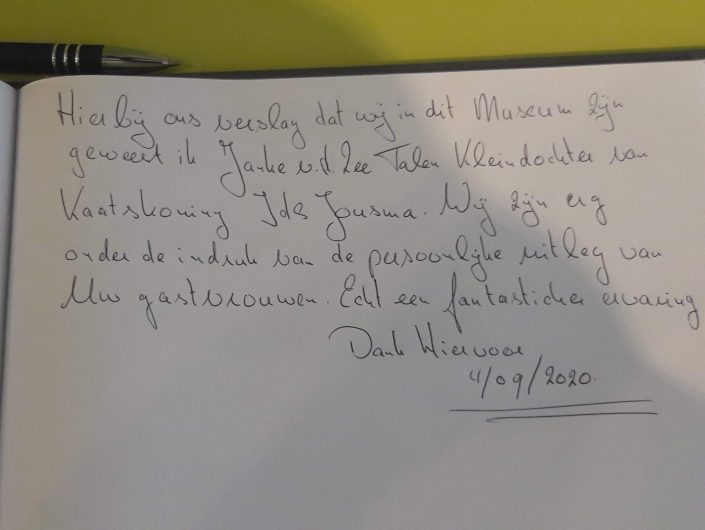 Hierbij ons verslag dat wij in dit Museum zijn
geweest ik Janke v.d. Zee Talen Kleindochter van
Kaatskoning Ids Jousma. Wij zijn erg
onder de indruk van de persoonlijke uitleg van
Uw gastvrouwen. Echt een fantastische ervaring
Dank Hiervoor
4/09/2020.